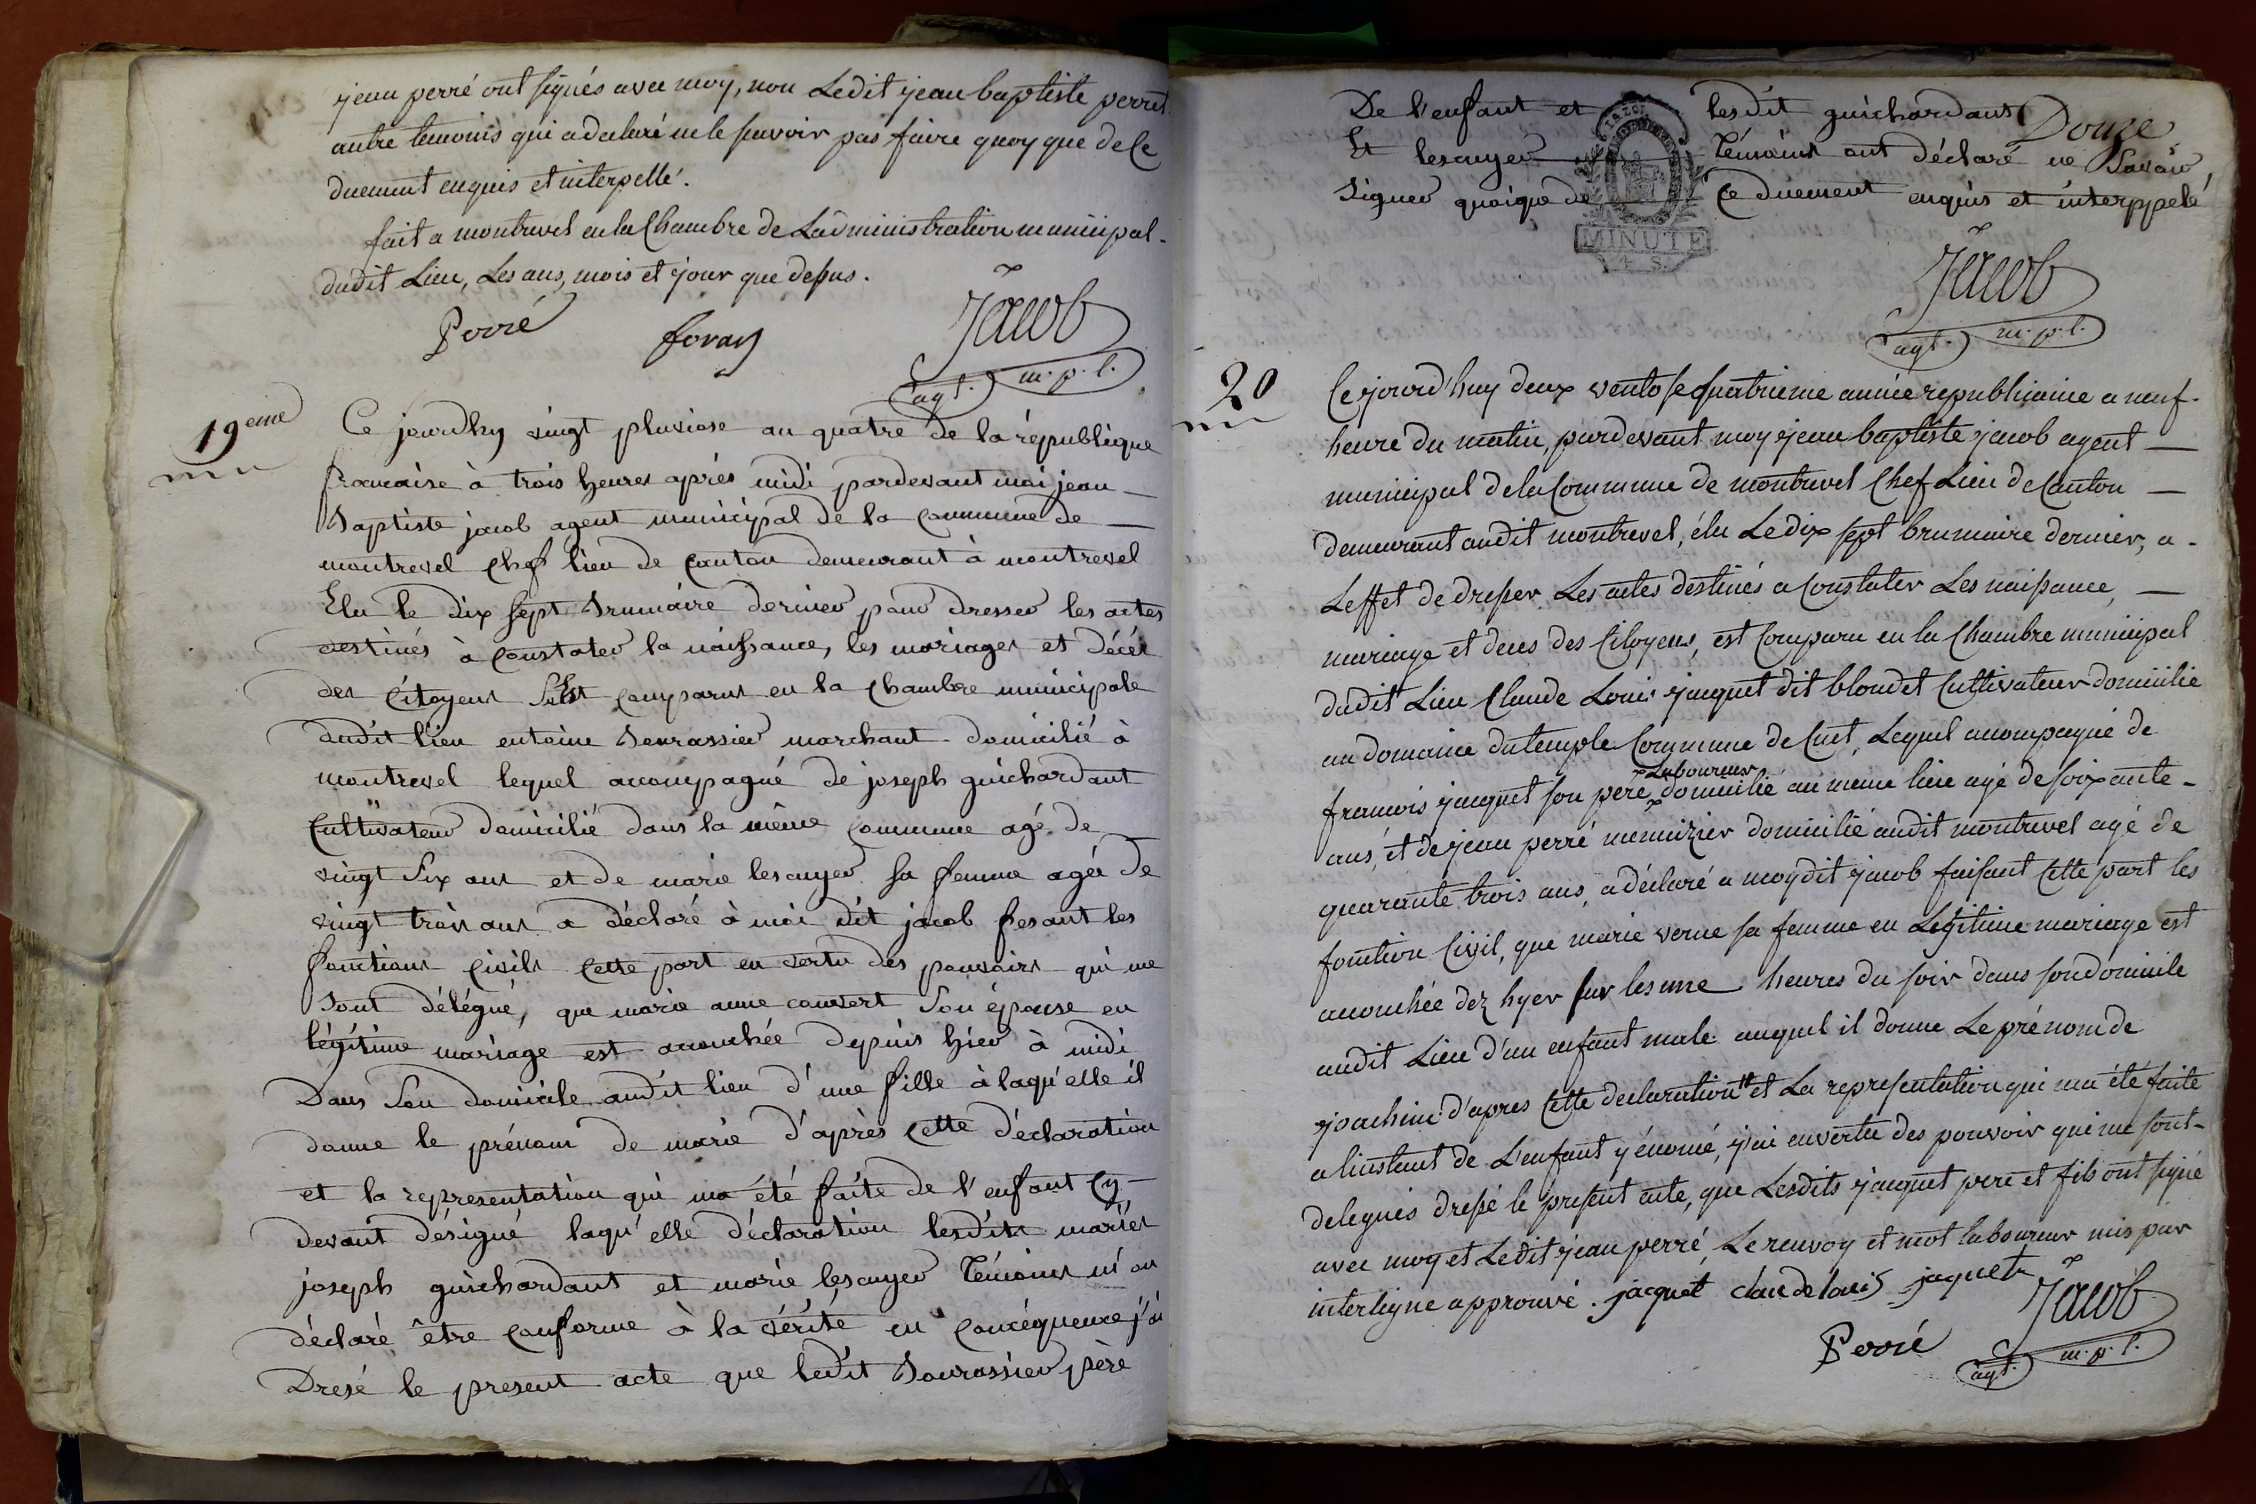 jean perré ont signés avec moy, non Ledit jean baptiste perret
autre temoins qui a declaré ne le scavoir pas faire quoy que de Ce
duement enquis et interpellé.
fait a montrevel en la Chambre de Ladministration municipal-
dudit Lieu, Les ans, mois et jour que dessus.
Perré Jacob
agt. m.p.l.
19eme
Ce jourdhuy vingt pluviose an quatre de la république
francaise à trois heures après midi pardevant moi jean
Baptiste jacob agent municipal de la commune de
montrevel Chef lieu de Canton demeurant à montrevel
Elu le dix sept Brumaire dernier pour dresser les actes
destinés à Constater la naissance, les mariages et décés
des Citoyens Est comparut en la Chambre municipale
dudit lieu entoine marchant domicilié à
montrevel lequel acompagné de joseph guichardant
Cultivateur domicilié dans la même commune agé de
vingt six ans et de marie lescuyer sa femme agée de
vingt trois ans a déclaré à moi dit jacob fesant les
fonctions Civils Cette part en vertu des pouvoirs qui me
sont délégué, que marie anne convert Son épouse en
légitime mariage est acouchée depuis hier à midi
Dans Son domicile audit lieu d'une fille à laqu'elle il
donne le prénom de marie d'après Cette déclaration
et la representation qui ma été faite de l'enfant Cy-
devant désigné laqu'elle déclaration lesdits mariés
joseph guichardant et marie lescuyer Témoins m'on
déclaré être conforme à la vérité en conséquence j'ai
Dresé le present acte que ledit père
De l'enfant et lesdit guichardant
Douze
Et lescuyer Témoins ont déclaré ne Savoir
Signer quoique de Ce duement enquis et interppelé
MINUTE
Jacob
agt. m.p.l.
20
Ce jourd'huy deux ventose quatrieme année republicaine a neuf-
heure du matin, pardevant moy jean baptiste jacob agent
municipal de la Commune de montrevel Chef Lieu de Canton
demeurant audit montrevel, élu Le dix sept brumaire dernier, a-
Leffet de dresser Les actes destinés a Constater Les naissance,
mariage et deces des Citoyens, est Comparu en la Chambre municipal
dudit Lieu Claude Louis jacquet dit blondet Cultivateur domicilié
au domaine du temple Commune de Cuet, Lequel acompagné de
Laboureur
francois jacquet son pere, domicilié au meme lieu agé de soixante-
ans, et de jean perré menuizier domicilié audit montrevel agé de
quarante trois ans, a déclaré a moydit jacob faisant Cette part les
fonction Civil, que marie verne sa femme en Legitime mariage est
acouchée dez hyer sur les une heures du soir dans son domicile
audit Lieu d'un enfant male auquel il donne Le prénom de
joachim d'apres Cette declaration et La representation qui ma été faite
a linstant de L'enfant y énomé, j'ai en vertu des pouvoir qui me sont-
delegués dressé le present acte, que Lesdits jacquet pere et fils ont signé
avec moy et Ledit jean perré, Le renvoy et mot laboureur mis par
interligne approuvé. jacquet claude louis jaquet
Jacob
Perré agt. m.p.l.